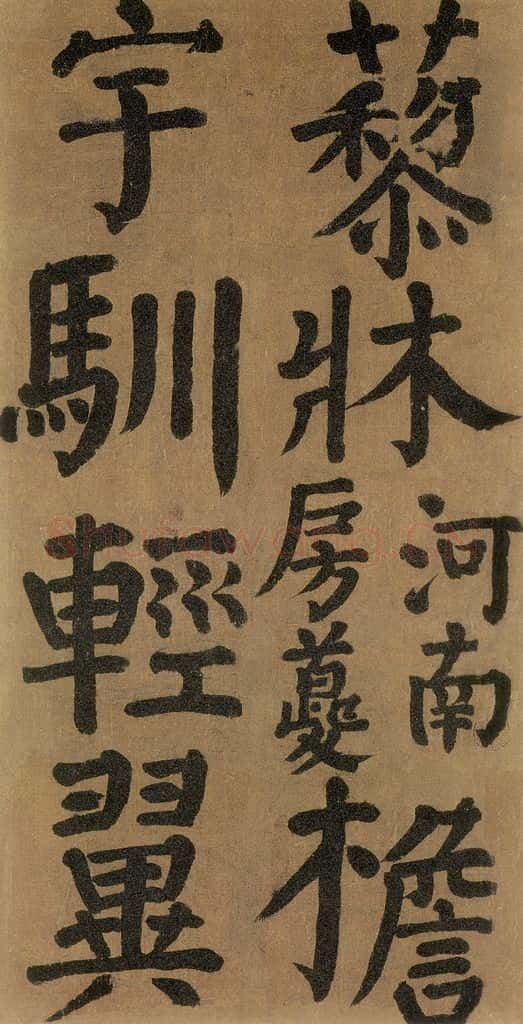 藜牀河南房夔檐
宇馴輕翼
shufawang.CN